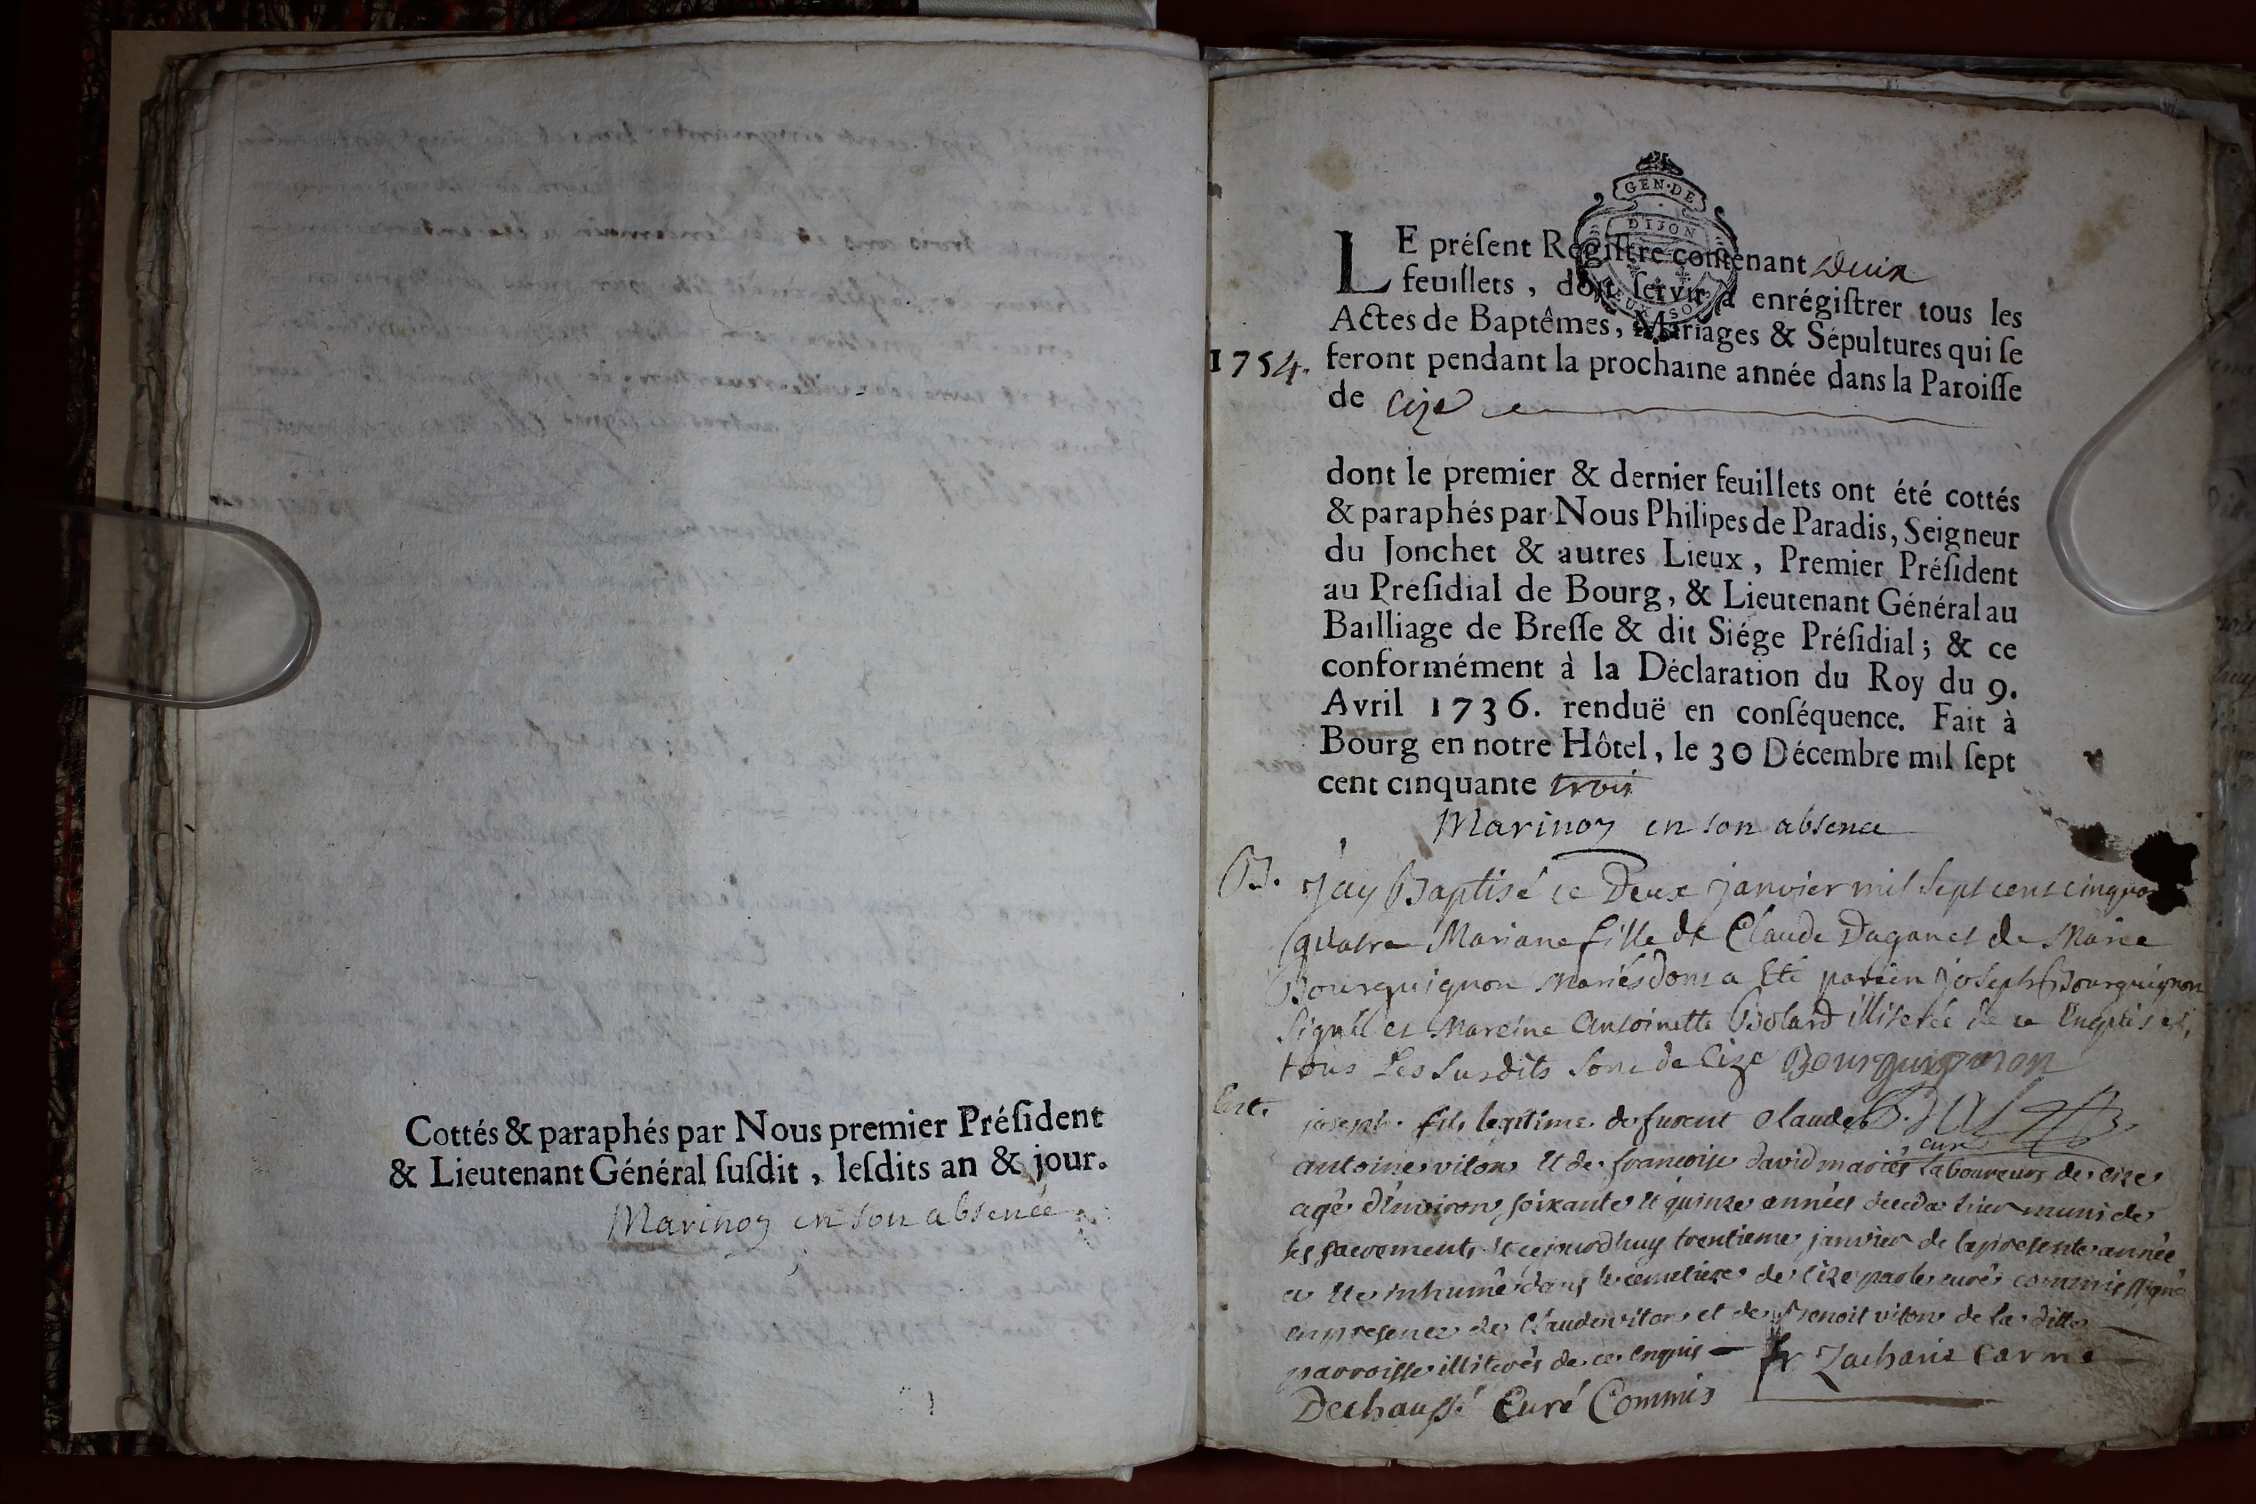 Cottés & paraphés par Nous premier Préſident
& Lieutenant Général ſuſdit, leſdits an & jour.
Marinon en son absence
GEN·DE
DIJON
LE préſent Regiſtre contenant Deux
feuillets, doit ſervir à enrégiſtrer tous les
Actes de Baptêmes, Mariages & Sépultures qui ſe
1754. feront pendant la prochaine année dans la Paroiſſe
de Cize
dont le premier & dernier feuillets ont été cottés
& paraphés par Nous Philipes de Paradis, Seigneur
du Jonchet & autres Lieux, Premier Préſident
au Preſidial de Bourg, & Lieutenant Général au
Bailliage de Breſſe & dit Siége Préſidial; & ce
conformément à la Déclaration du Roy du 9.
Avril 1736. renduë en conſéquence. Fait à
Bourg en notre Hôtel, le 30 Décembre mil ſept
cent cinquante trois
Marinon en son absence
B. J'ay Baptisé ce Deux janvier mil sept cent cinqua
quatre Mariane fille de Claude Dagan et de Marie
Bourguignon Mariés dont a Eté parein joseph Bourguignon
signé et Mareine Antoinette Bolard illiterée de ce Enquise,
tous Les susdits sont de Cize Bourguignon
joseph fils legitime de furent Claude
curé
antoine viton et de francoise david mariés laboureurs de cize
agé d'environ soixante et quinze années decedé hier muni de
ses sacrements et cejourdhuy trentieme janvier de la presente année
a ete inhumé dans le cemetiere de Cize par le curé commis signé
en presence de Claude viton et de Benoit viton de la ditte
parroisse illiterés de ce enquis fr Zacharie Carme
Dechaussé Curé Commis